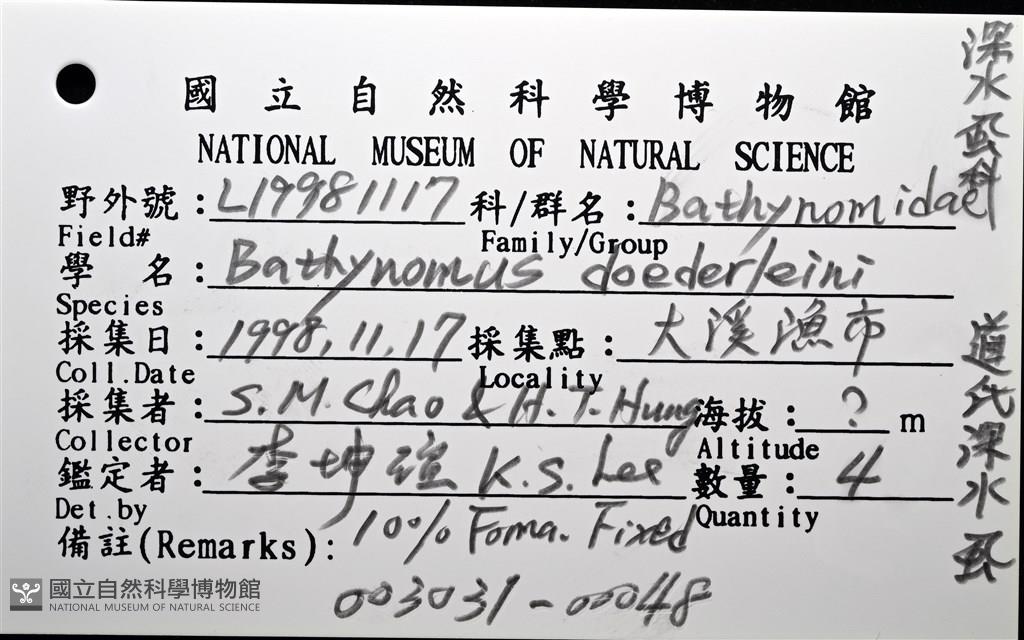 國立自然科學博物館
NATIONAL MUSEUM OF NATURAL SCIENCE
野外號：L19981117 科/群名：Bathynomidae
Field# Family/Group
學 名：Bathynomus doederleini
Species
採集日：1998.11.17 採集點：大溪漁市
Coll.Date Locality
採集者：S.M.Chao & H.T.Hung 海拔：? m
Collector Altitude
鑑定者：李坤瑄 K.S.Lee 數量：4
Det.by Quantity
備註(Remarks)：10% Foma. Fixed
003031-00048
深水虱科
道氏深水虱
國立自然科學博物館
NATIONAL MUSEUM OF NATURAL SCIENCE